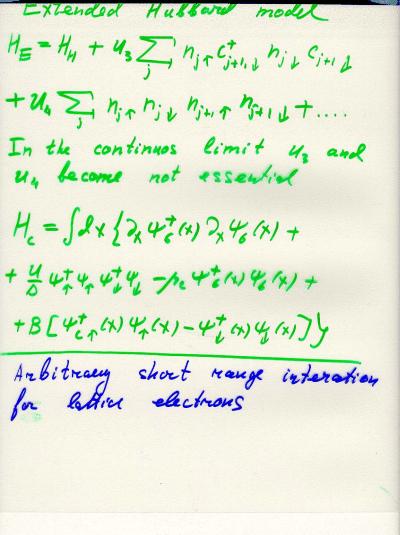 Extended Hubbard model
H_E = H_H + u_3 Σ_j n_j↑ c†_j+1,↓ n_j↓ c_j+1↓
+ u_4 Σ_j n_j↑ n_j↓ n_j+1↑ n_j+1↓ + ....
In the continuos limit u_3 and
u_4 become not essential
H_c = ∫dx { ∂_x ψ†_σ(x) ∂_x ψ_σ(x) +
+ u/Δ ψ†_↑ ψ_↑ ψ†_↓ ψ_↓ - μ_c ψ†_σ(x) ψ_σ(x) +
+ B [ψ†_↑(x) ψ_↑(x) - ψ†_↓(x) ψ_↓(x)] }
Arbitrary short range interation
for lattice electrons